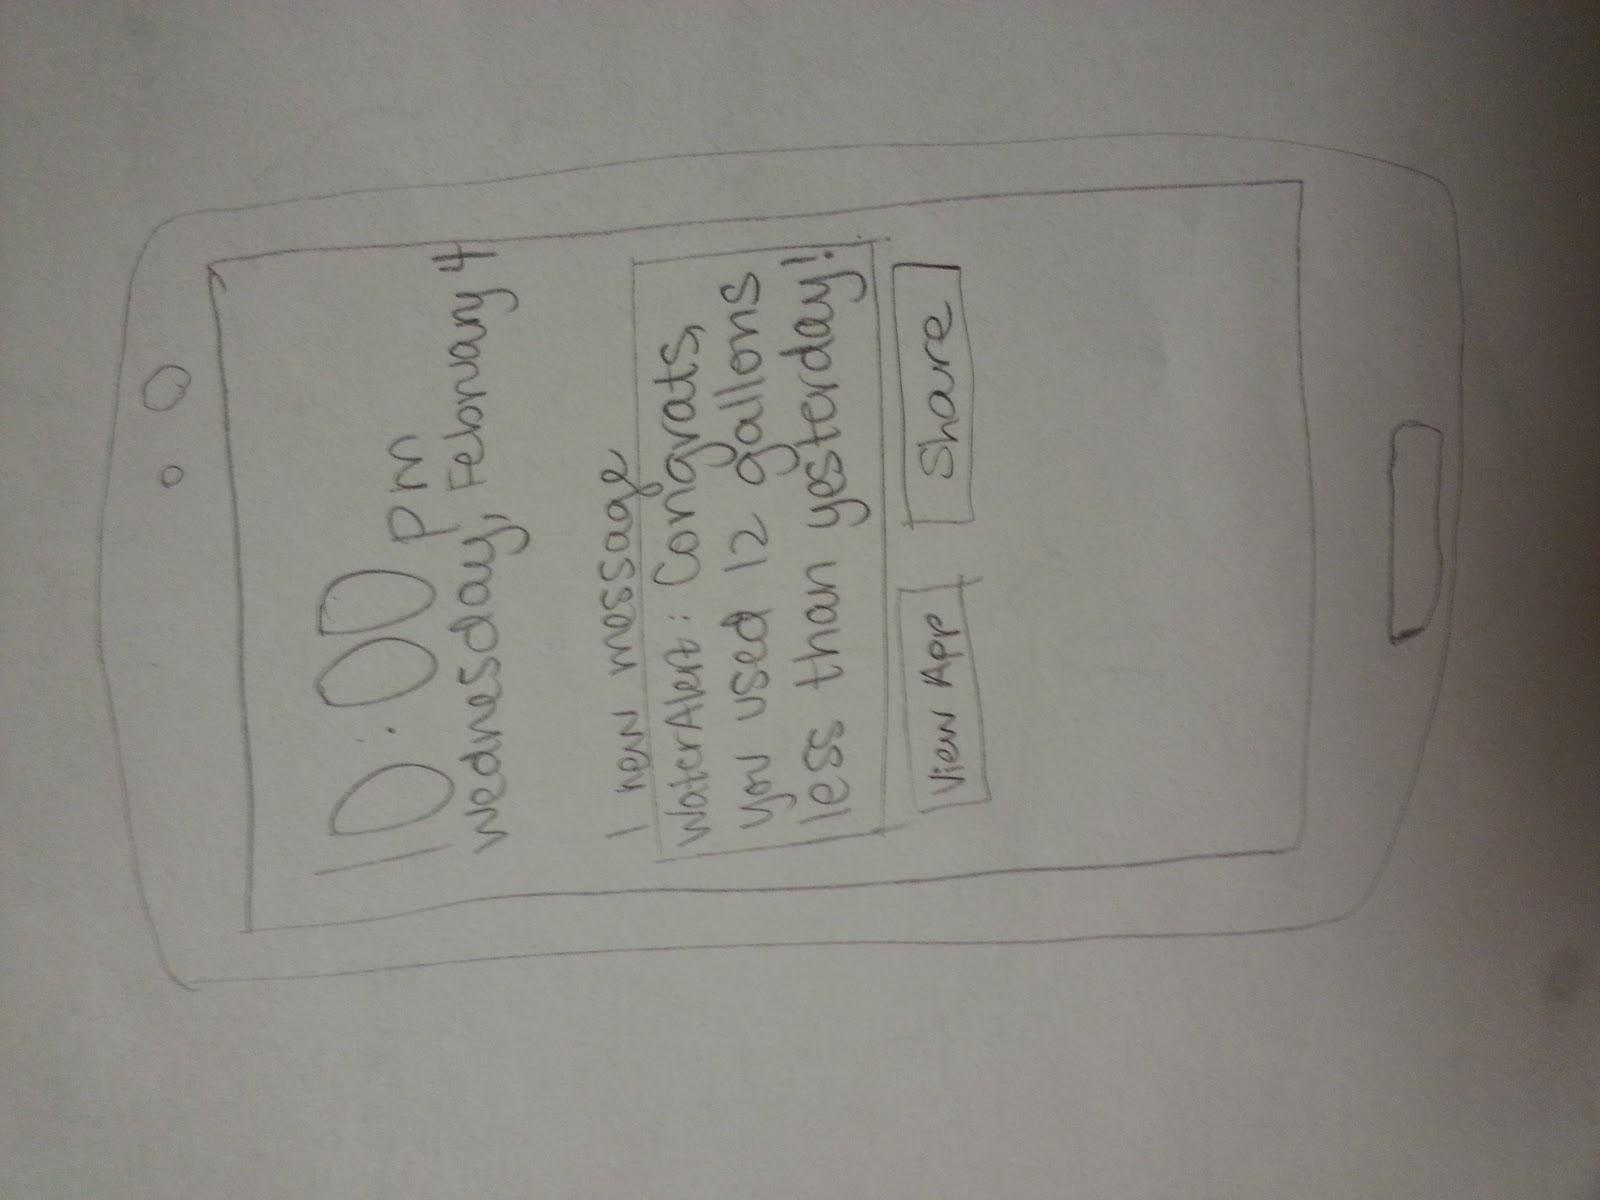 10:00 pm
Wednesday, February 4
1 new message
WaterAlert: Congrats,
you used 12 gallons
less than yesterday!
View App
Share